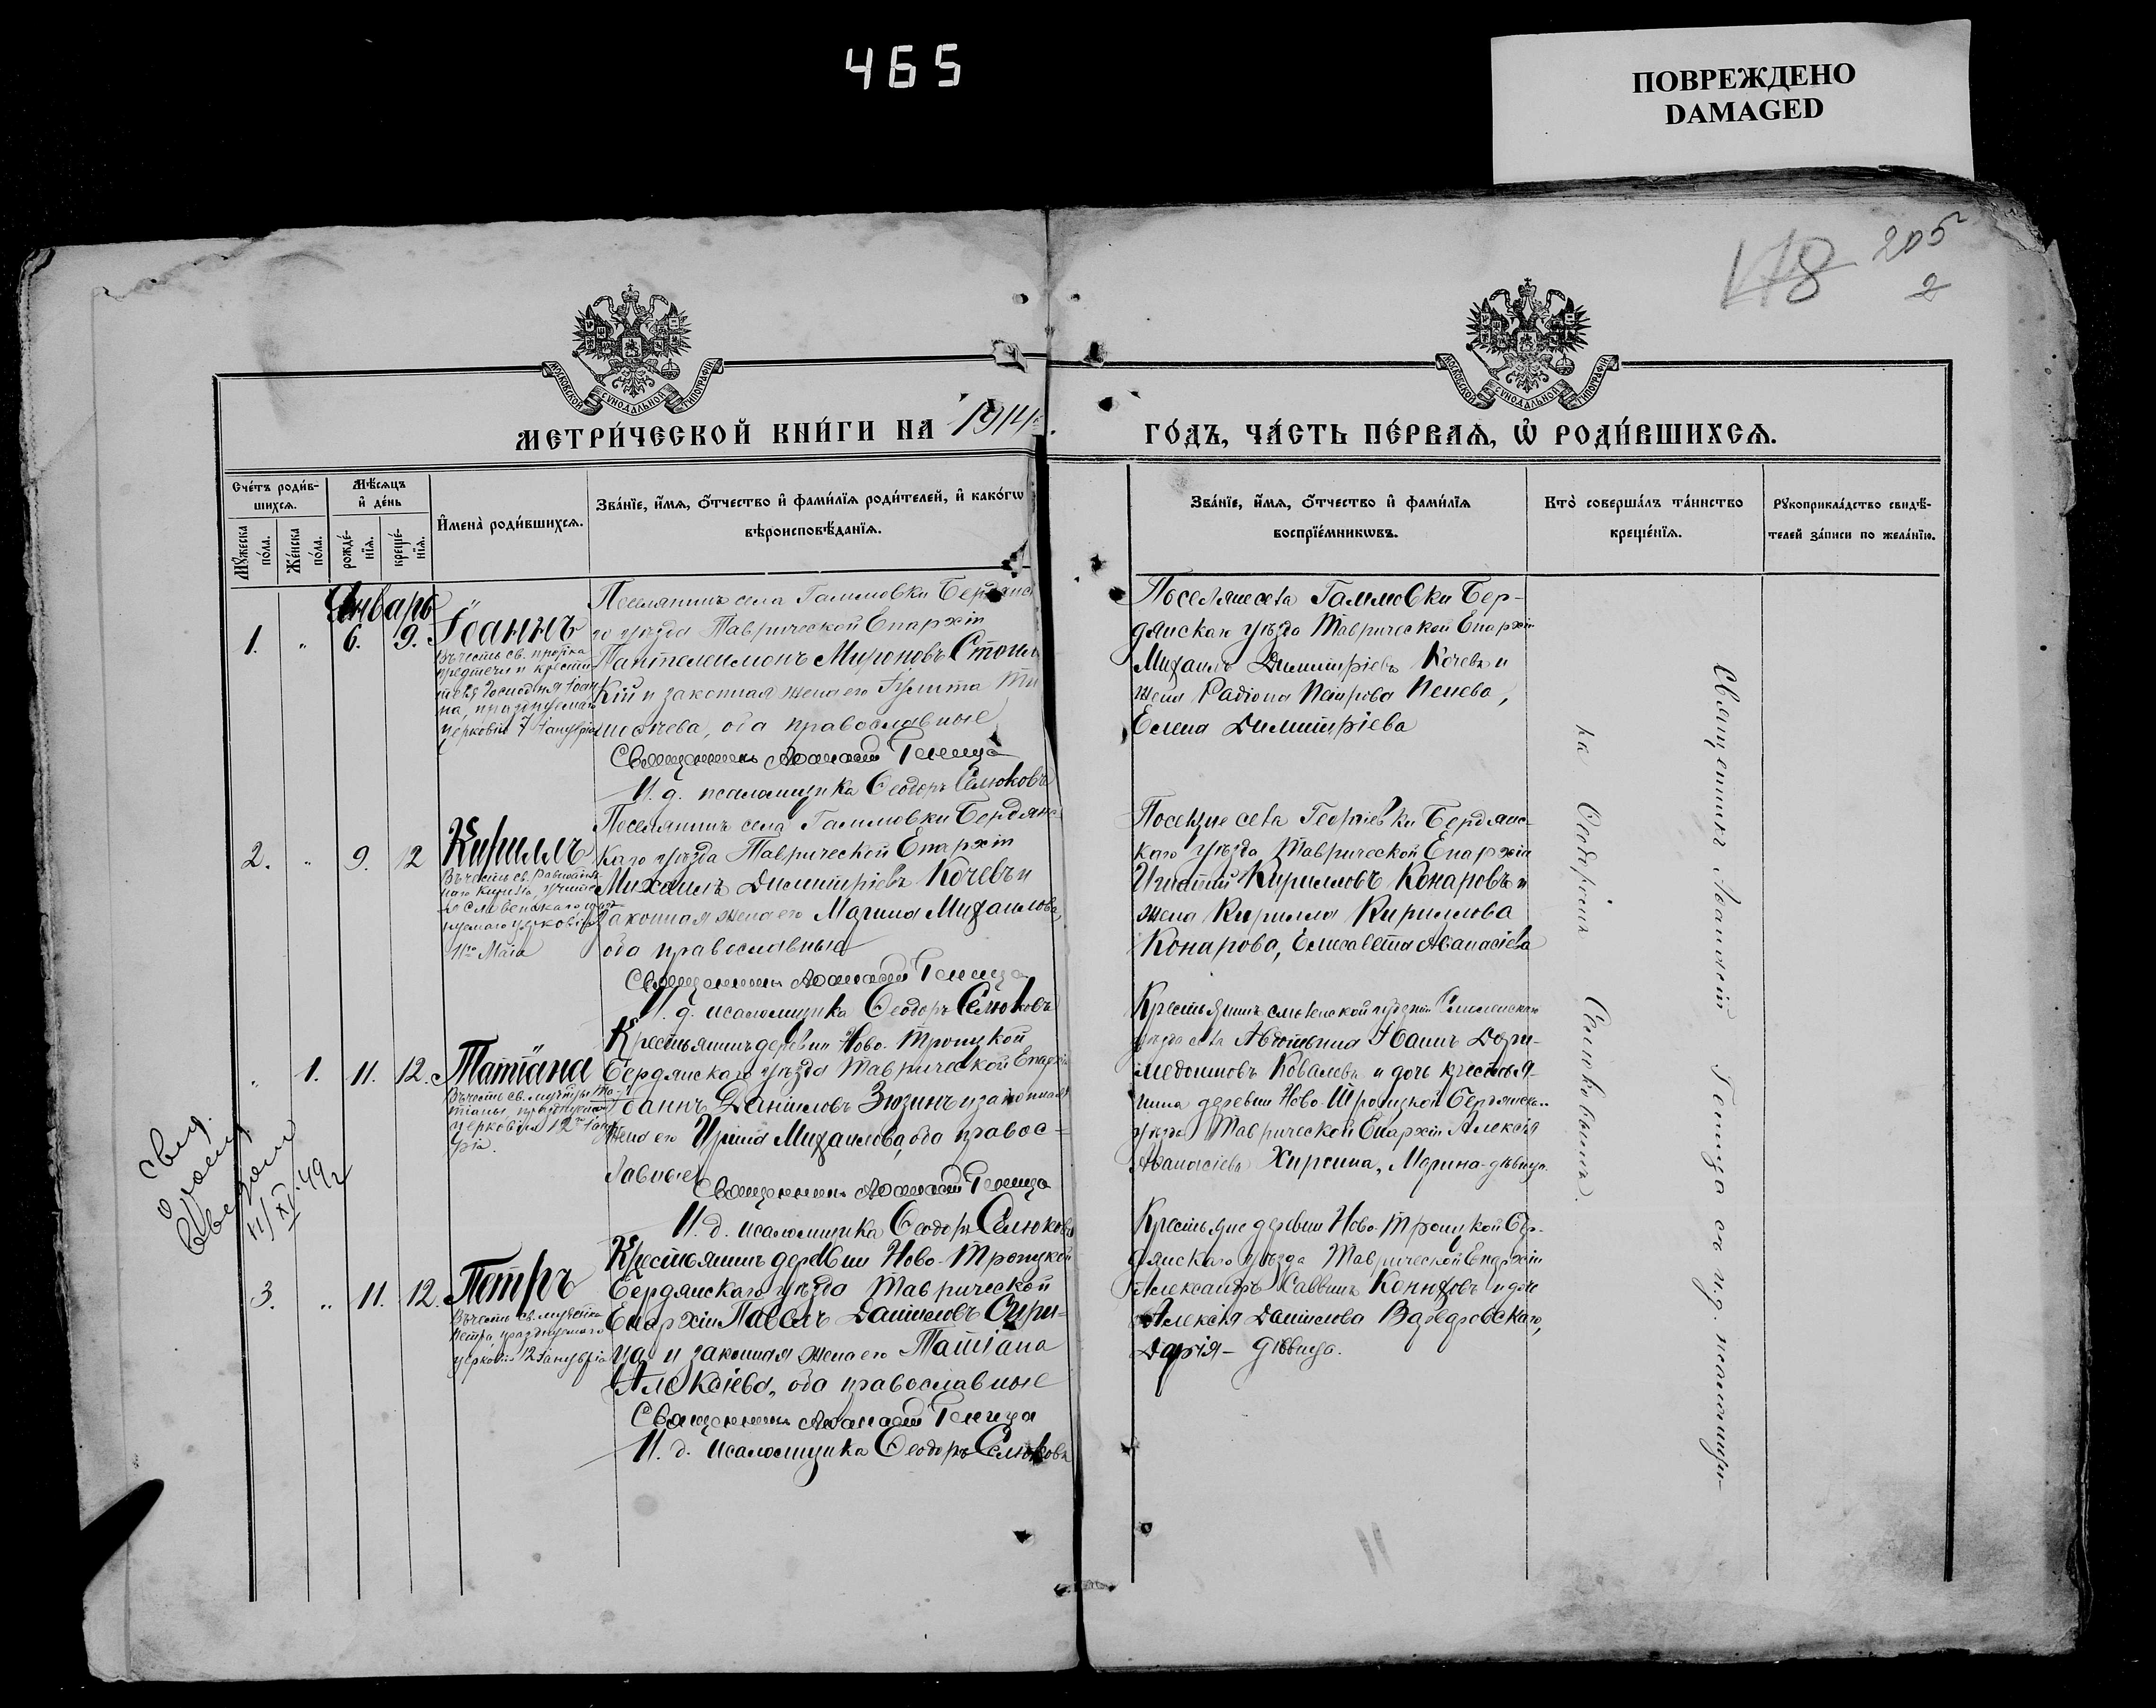 465
ПОВРЕЖДЕНО
DAMAGED
178
205
2
МОСКОВСКОЙ СѴНОДАЛЬНОЙ ТИПОГРАФІИ
МОСКОВСКОЙ СѴНОДАЛЬНОЙ ТИПОГРАФІИ
МЕТРИ́ЧЕСКОЙ КНИ́ГИ НА 1914
ГО́ДЪ, ЧА́СТЬ ПЕ́РВАѦ, Ѡ҆ РОДИ́ВШИХСѦ.
Сче́тъ роди́в-
шихсѧ.
Мѣ́сѧцъ
и҆ де́нь
Мꙋ́жеска
по́ла.
Же́нска
по́ла.
рожде́-
нїѧ.
креще́-
нїѧ.
И҆мена̀ роди́вшихсѧ.
Зва́нїе, и҆́мѧ, ѻ҆́тчество и҆ фами́лїѧ роди́телей, и҆ како́гѡ
вѣроисповѣ́данїѧ.
Зва́нїе, и҆́мѧ, ѻ҆́тчество и҆ фами́лїѧ
воспрїе́мникѡвъ.
Кто̀ соверша́лъ та́инство
креще́нїѧ.
Рꙋкоприкла́дство свидѣ́-
телей за́писи по жела́нїю.
Январь
1. " 6. 9. Іоаннъ
Въ честь св. пророка
предтечи и крести-
теля Господня Іоан
на, празднуемаго
церковію 7 Января
Поселянинъ села Гаммовки Бердянска
го уѣзда Таврической Епархіи
Пантелеимонъ Мироновъ Стоян
кій и законная жена его
, оба православные
Священникъ Аѳанасій Геница
И. д. псаломщика Ѳеодоръ Селюковъ
Поселяне села Гаммовки Бер-
дянскаго уѣзда Таврической Епархіи
Михаилъ Димитріевъ Кочевъ и
жена Радіона Петрова Пенева,
Елена Димитріева
2. " 9. 12 Кириллъ
Въ честь св. Равноапостоль
наго Кирилла, учите
ля Славенскаго празд
нуемаго церковію
11го Мая
Поселянинъ села Гаммовки Бердянс-
каго уѣзда Таврической Епархіи
Михаилъ Димитріевъ Кочевъ и
законная жена его Марина Михаилова,
оба православные
Священникъ Аѳанасій Геница
И. д. псаломщика Ѳеодоръ Селюковъ
Поселяне села Георгіевки Бердянс-
каго уѣзда Таврической Епархіи
Игнатій Кирилловъ Конаровъ и
жена Кирилла Кириллова
Конарова, Елисавета Аѳанасіева
" 1. 11. 12. Татіана
Въ честь св. муч-цы Та-
тіаны, празднуемой
церковію 12го Янву-
арія.
Крестьянинъ деревни Ново-Троицкой
Бердянскаго уѣзда Таврической Епархіи
Іоаннъ Даниловъ Зюзинъ и законная
жена его Ирина Михаилова, оба правос-
лавные
Священникъ Аѳанасій Геница
И. д. псаломщика Ѳеодоръ Селюковъ
Крестьянинъ Смоленской губерніи
уѣзда села Іоаннъ Дори-
медонтовъ Ковалевъ и дочь крестья-
нина деревни Ново-Троицкой Бердянск.
уѣзда Таврической Епархіи Алексія
Аѳанасіева Хирсина, Марина-дѣвица.
3. " 11. 12. Петръ
Въ честь св. мученика
Петра празднуемаго
церковію 12 Январіа
Крестьянинъ деревни Ново-Троицкой
Бердянскаго уѣзда Таврической
Епархіи Павелъ Даниловъ Сури-
на и законная жена его Татіана
Алексіева, оба православные
Священникъ Аѳанасій Геница
И. д. псаломщика Ѳеодоръ Селюковъ
Крестьяне деревни Ново-Троицкой Бер-
дянскаго уѣзда Таврической Епархіи
Александръ Саввинъ Конюховъ и дочь
Алексія Данилова
Дарія - дѣвица.
Священникъ Аѳанасій Геница съ и.д. псаломщи-
ка Ѳеодоромъ Селюковымъ.
свид.
11/XI 49 г